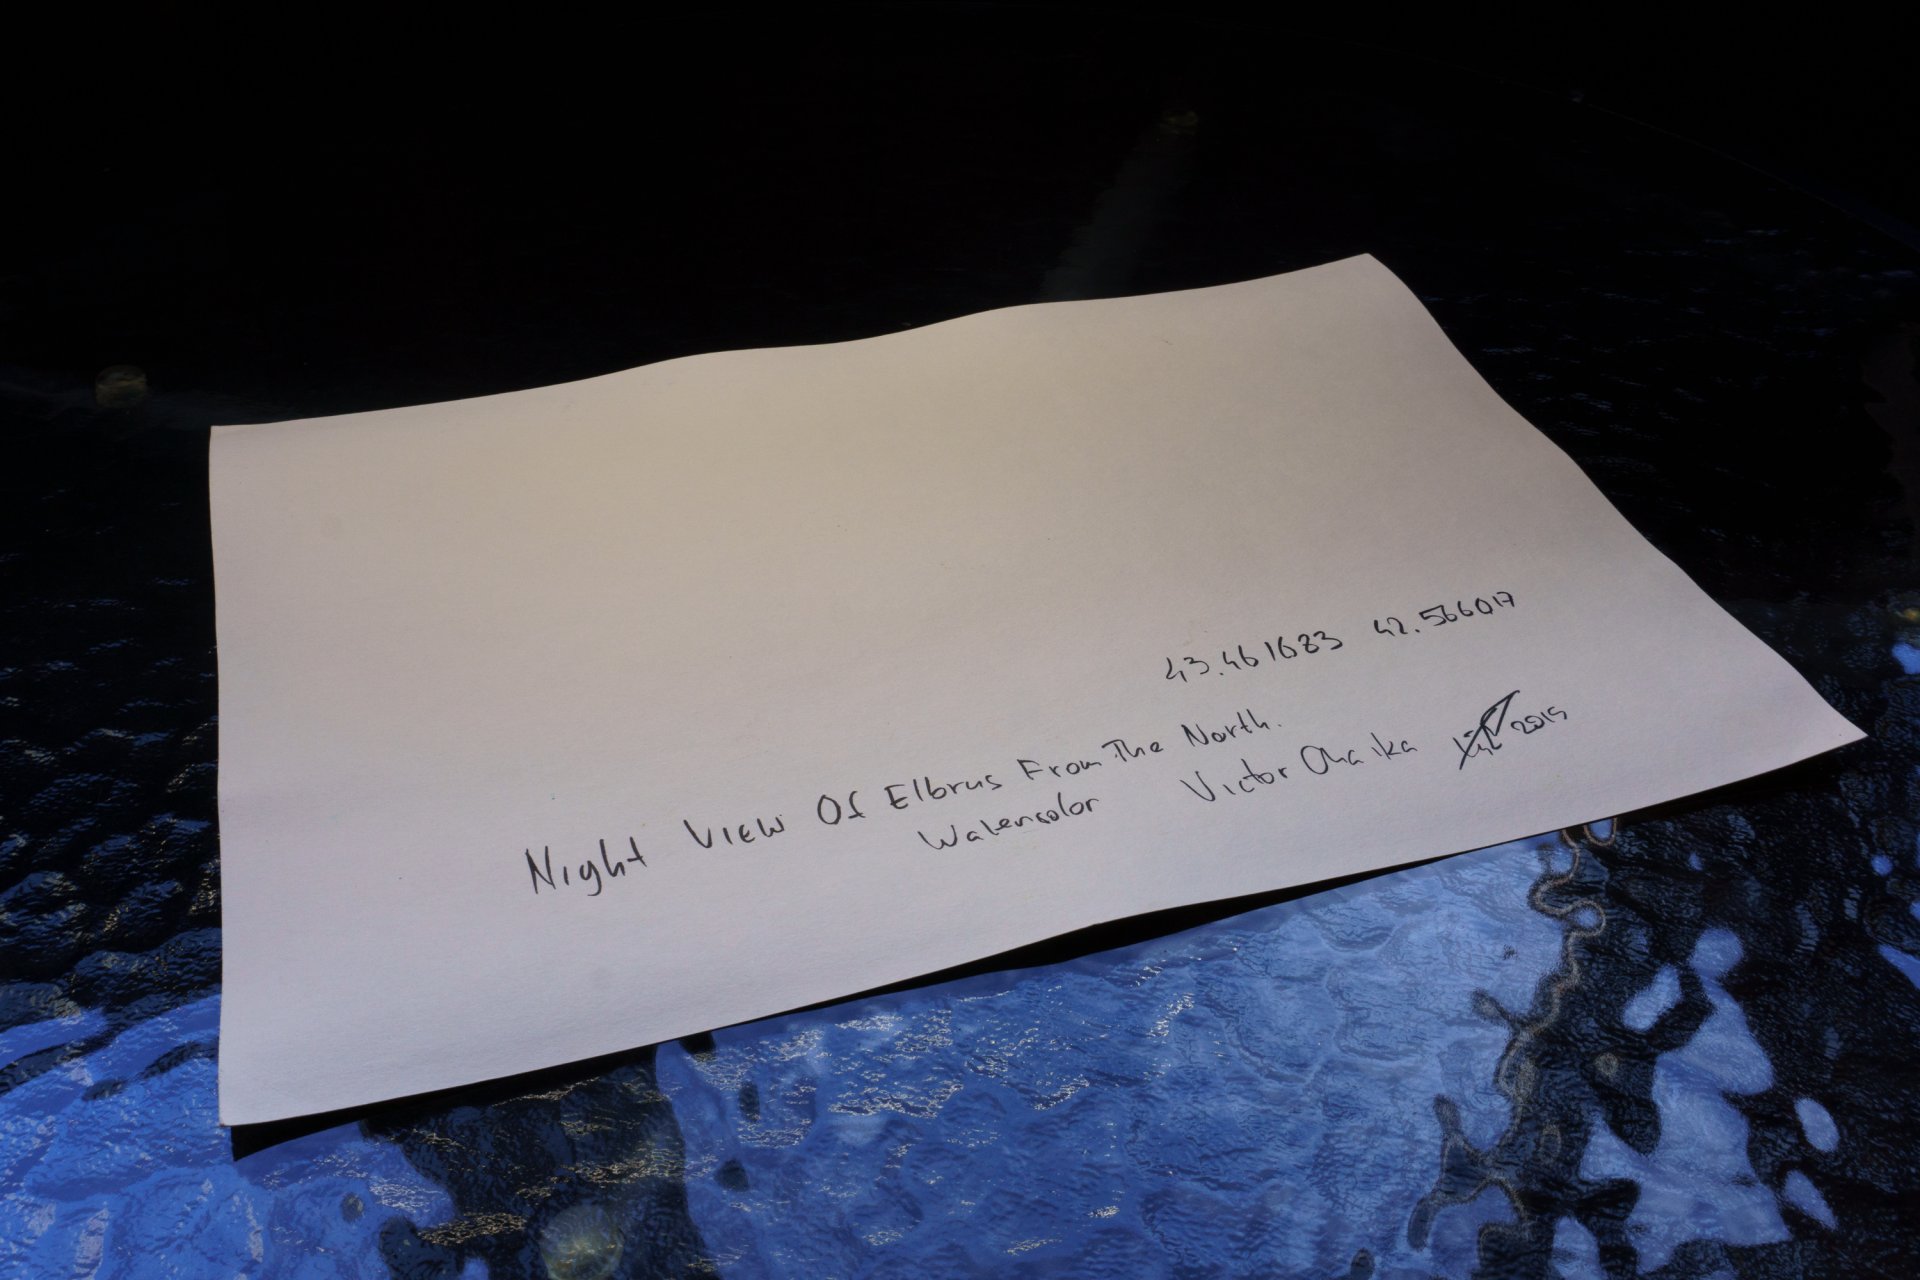 43.461683 42.566017
Night View Of Elbrus From The North.
Watercolor Victor Chaika 2015